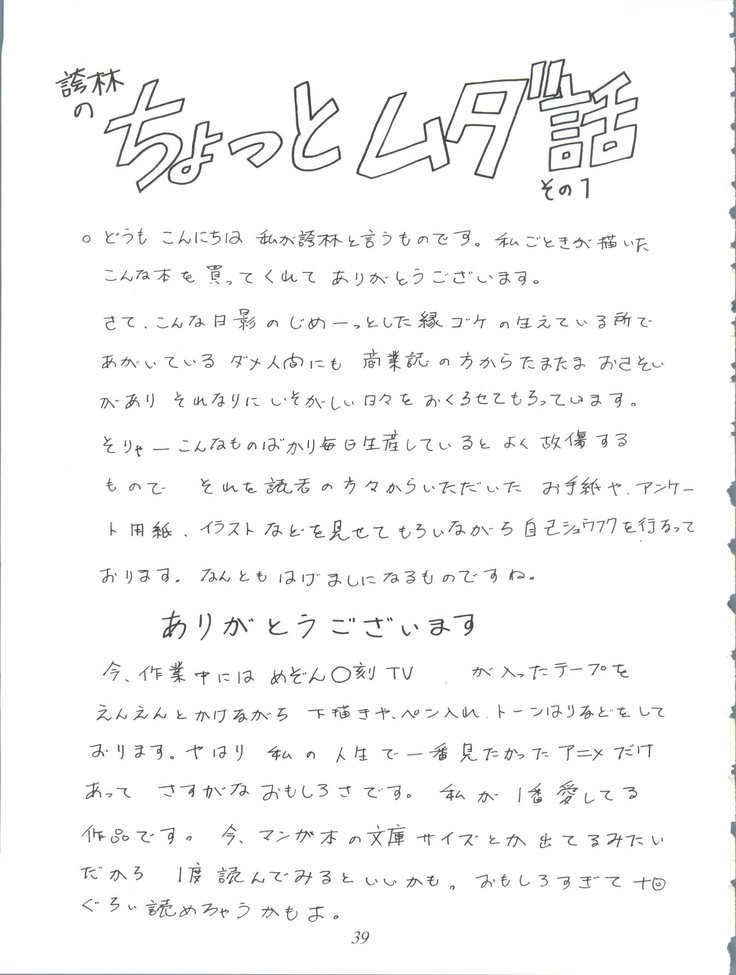 誇林の
ちょっとムダ話
その1
○ どうも こんにちは 私が誇林と言うものです。私ごときが描いた
こんな本を 買ってくれて ありがとうございます。
さて、こんな日影のじめーっとした縁ゴケの生えている所で
あがいている ダメ人間にも 商業誌の方からたまたま おさそい
があり それなりに いそがしい日々を おくらせてもらっています。
そりゃーこんなものばかり毎日生産していると よく故傷する
もので それを読者の方々からいただいた お手紙や、アンケー
ト用紙、イラストなどを見せてもらいながら 自己ショウフクを行なって
おります。なんとも はげましになるものですね。
ありがとうございます
今、作業中には めぞん○刻TV が入ったテープを
えんえんとかけながら 下描きや、ペン入れ、トーンはりなどをして
おります。やはり 私の人生で一番見たかったアニメだけ
あって さすがな おもしろさです。私が1番愛してる
作品です。今、マンガ本の文庫サイズとか出てるみたい
だから 1度読んでみるといいかも。おもしろすぎて十回
ぐらい読めちゃうかもよ。
39